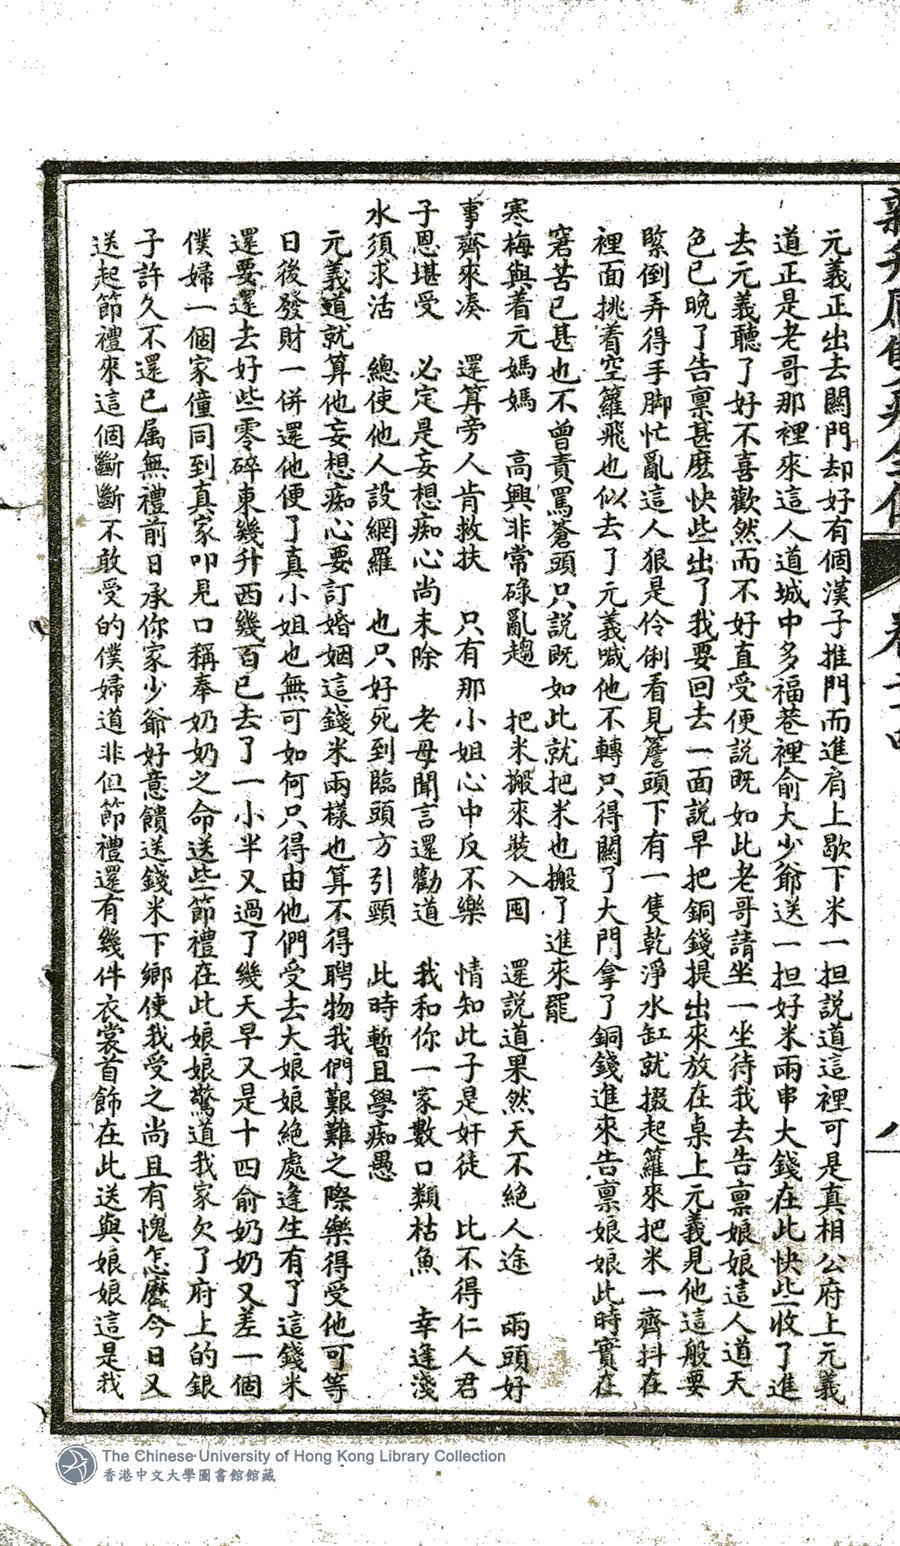 卷
八
元義正出去關門却好有個漢子推門而進肩上歇下米一担說道這裡可是真相公府上元義
道正是老哥那裡來這人道城中多福巷裡俞大少爺送一担好米兩串大錢在此快些收了進
去元義聽了好不喜歡然而不好直受便說既如此老哥請坐一坐待我去告禀娘娘這人道天
色已晚了告禀甚麽快些出了我要回去一面說早把銅錢提出來放在桌上元義見他這般要
緊倒弄得手脚忙亂這人狠是伶俐看見簷頭下有一隻乾淨水缸就掇起籮來把米一齊抖在
裡面挑着空籮飛也似去了元義喊他不轉只得關了大門拿了銅錢進來告禀娘娘此時實在
窘苦已甚也不曾責罵蒼頭只說既如此就把米也搬了進來罷
寒梅與着元媽媽 高興非常碌亂趨 把米搬來裝入囤 還說道果然天不絕人途 兩頭好
事齊來凑 還算旁人肯救扶 只有那小姐心中反不樂 情知此子是奸徒 比不得仁人君
子恩堪受 必定是妄想痴心尚未除 老母聞言還勸道 我和你一家數口類枯魚 幸逢淺
水須求活 總使他人設網羅 也只好死到臨頭方引頸 此時暫且學痴愚
元義道就算他妄想痴心要訂婚姻這錢米兩樣也算不得聘物我們艱難之際樂得受他可等
日後發財一併還他便了真小姐也無可如何只得由他們受去大娘娘絕處逢生有了這錢米
還要還去好些零碎東幾升西幾百已去了一小半又過了幾天早又是十四俞奶奶又差一個
僕婦一個家僮同到真家叩見口稱奉奶奶之命送些節禮在此娘娘驚道我家欠了府上的銀
子許久不還已属無禮前日承你家少爺好意饋送錢米下鄉使我受之尚且有愧怎麽今日又
送起節禮來這個斷斷不敢受的僕婦道非但節禮還有幾件衣裳首飾在此送與娘娘這是我
The Chinese University of Hong Kong Library Collection
香港中文大學圖書館館藏